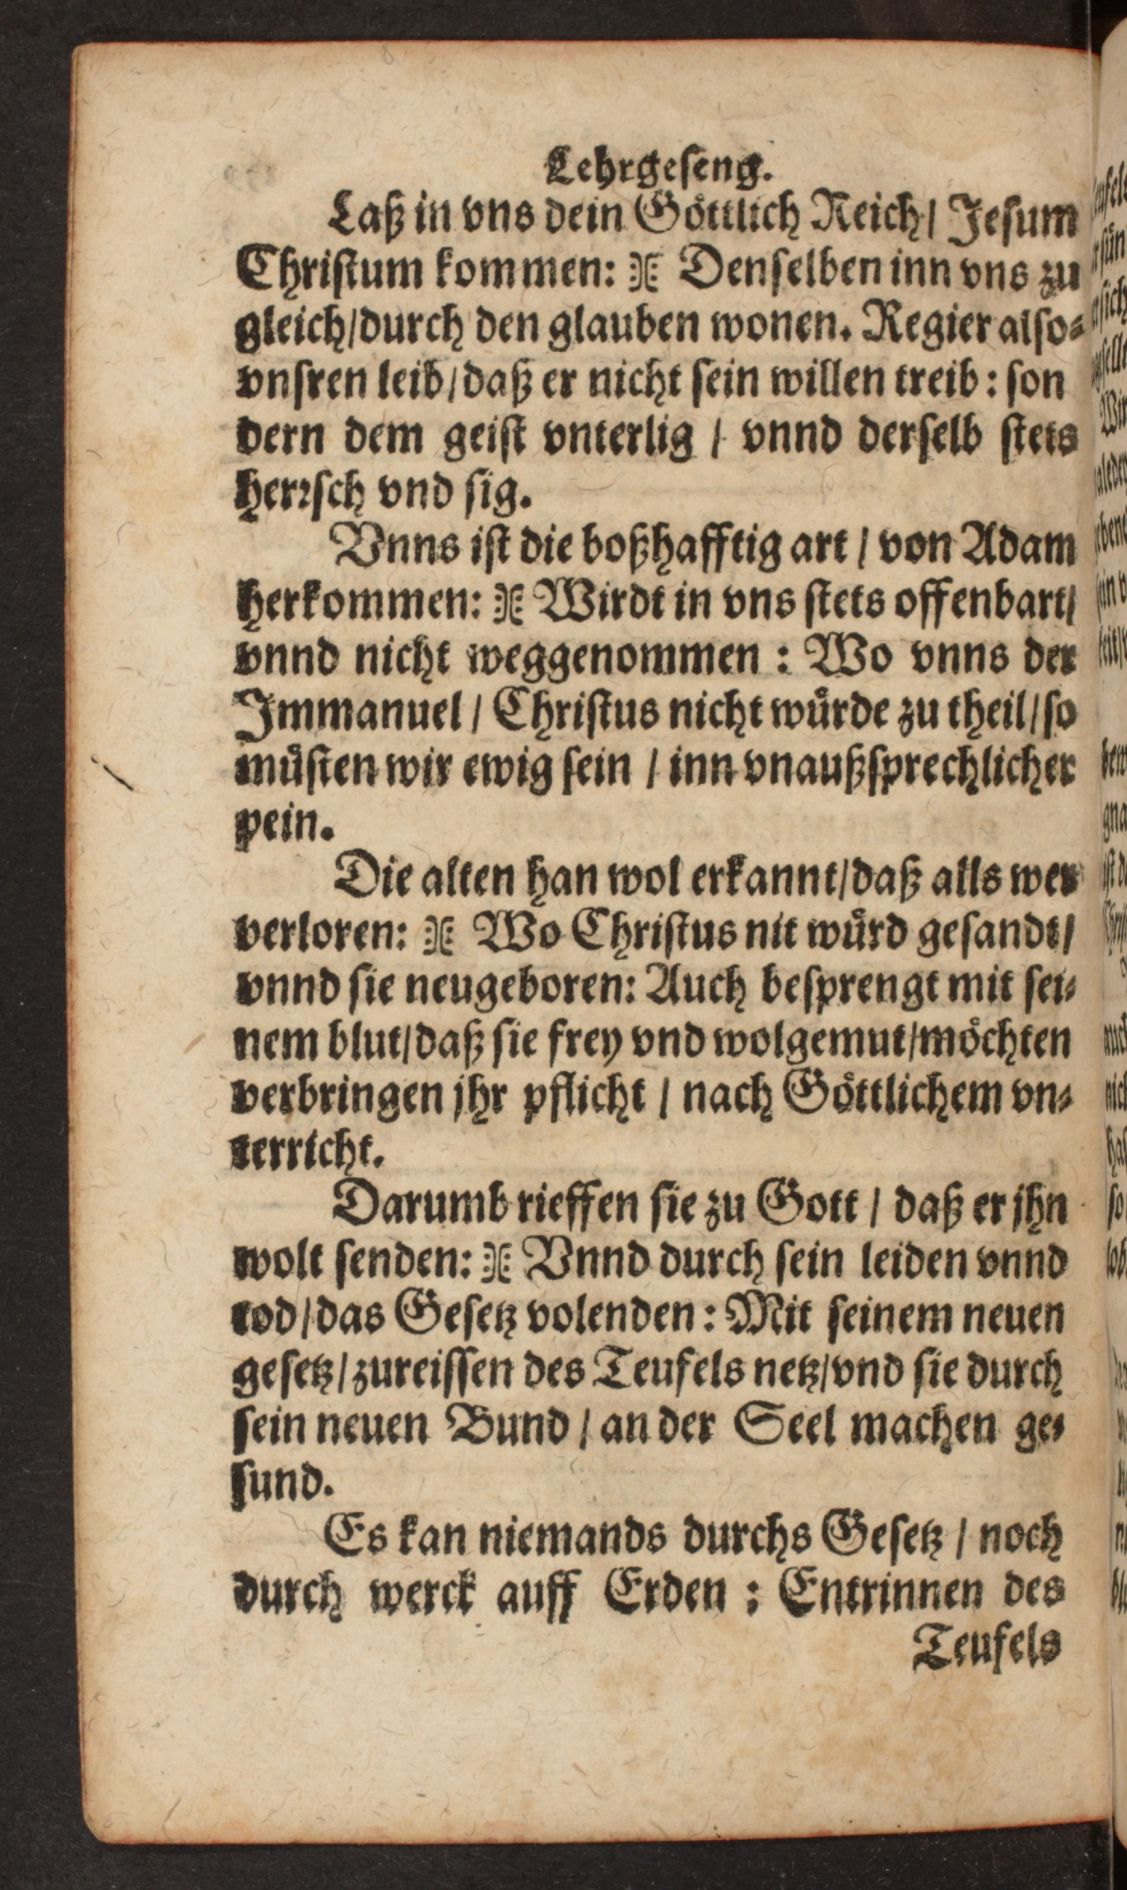 Lehrgeseng.
Laß in vns dein Göttlich Reich/ Jesum
Christum kommen: Denselben inn vns zu
gleich/durch den glauben wonen. Regier also⸗
vnsren leib/daß er nicht sein willen treib: son
dern dem geist vnterlig / vnnd derselb stets
herrsch vnd sig.
Vnns ist die boßhafftig art / von Adam
herkommen: Wirdt in vns stets offenbart/
vnnd nicht weggenommen : Wo vnns der
Immanuel / Christus nicht würde zu theil/so
müsten wir ewig sein / inn vnaußsprechlicher
pein.
Die alten han wol erkannt/daß alls wer
verloren: Wo Christus nit würd gesandt/
vnnd sie neugeboren: Auch besprengt mit sei⸗
nem blut/daß sie frey vnd wolgemut/möchten
verbringen jhr pflicht / nach Göttlichem vn⸗
terricht.
Darumb rieffen sie zu Gott / daß er jhn
wolt senden: Vnnd durch sein leiden vnnd
tod/das Gesetz volenden: Mit seinem neuen
gesetz/zureissen des Teufels netz/vnd sie durch
sein neuen Bund / an der Seel machen ge⸗
sund.
Es kan niemands durchs Gesetz / noch
durch werck auff Erden : Entrinnen des
Teufels